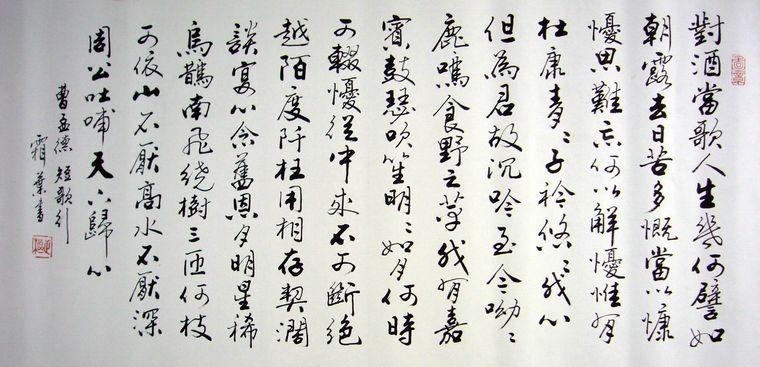 對酒當歌人生幾何譬如
朝露去日苦多慨當以慷
懮思難忘何以解懮惟有
杜康青〻子衿悠〻我心
但為君故沉吟至今呦〻
鹿鳴食野之苹我有嘉
賓鼓瑟吹笙明〻如月何時
可輟懮從中來不可斷絕
越陌度阡枉用相存契闊
談宴心念舊恩月明星稀
烏鵲南飛繞樹三匝何枝
可依山不厭高水不厭深
周公吐哺天下歸心
曹孟德短歌行
霜葉書